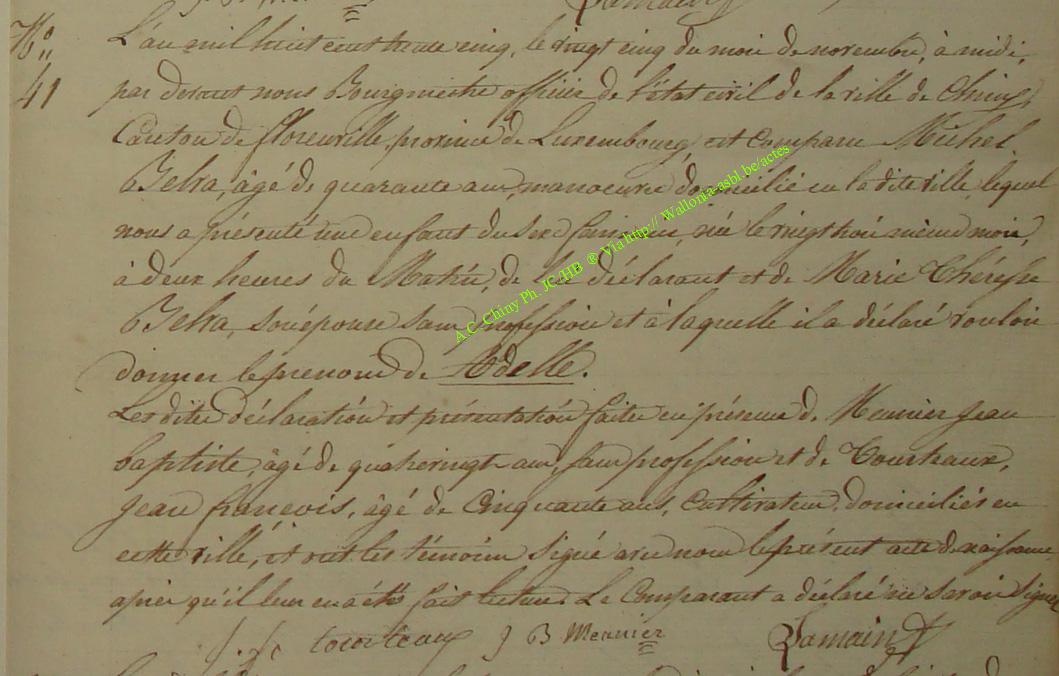 N°
41
L'an mil huit cent trente cinq, le vingt cinq du mois de novembre, à midi,
par devant nous Bourgmestre officier de l'état civil de la ville de Chiny,
Canton de florenville, province de Luxembourg, est comparu Michel
âgé de quarante ans, manoeuvre domicilié en la dite ville, lequel
nous a présenté une enfant du sexe féminin, née le vingt trois même mois,
à deux heures du Matin, de lui déclarant et de Marie Therese
son épouse sans profession et à laquelle il a déclaré vouloir
donner le prenom de Adelle.
Les dites déclaration et présentation faites en présence de Meunier Jean
baptiste, âgé de quatrevingt ans, sans profession et de Tourteaux,
Jean francois, âgé de Cinquante ans, Cultivateur, domiciliés en
cette ville, et ont les témoins signé avec nous le présent acte de naissance
après qu'il leur en a été fait lecture. Le Comparant a déclaré ne savoir signer
J. f. tourteaux J B Meunier Lamain
A.C. Chiny Ph. JC/HB ® Via http:// Wallonia-asbl.be/actes